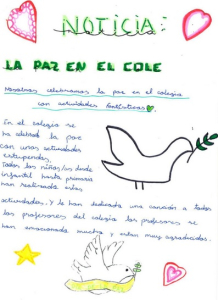 NOTICIA:
LA PAZ EN EL COLE
Nosotros celebramos la paz en el colegio
con actividades fantásticas.
En el colegio se
ha celebrado la paz
con unas actividades
estupendas.
Todos los niños/as desde
infantil hasta primaria
han realizado estas
actividades. Y le han dedicado una canción a todos
los profesores del colegio los profesores se
han emocionado mucho y están muy agradecidos.